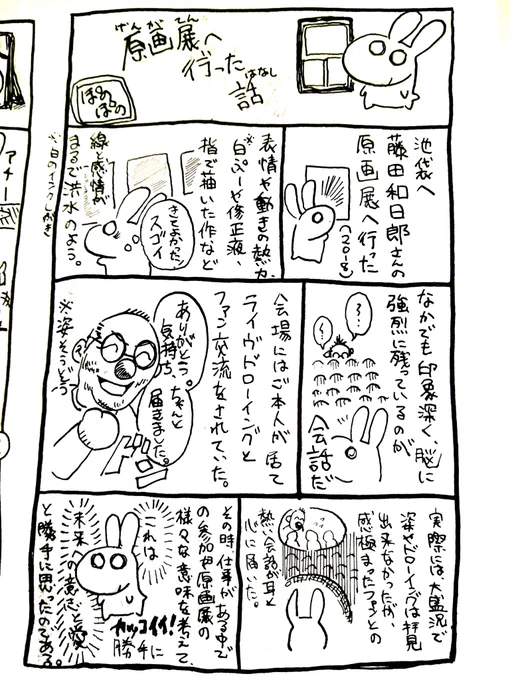 原画展へ
げんがてん
行った
話
はなし
ぽのぽの
池袋へ
藤田和日郎さんの
原画展へ行った
(2018)
表情や動きの熱力、
※白ぷーや修正液、
指で描いた作など
線と感情が
まるで洪水のよう。
きてよかった!
スゴイ
※白のインクしぶき
なかでも印象深く、脳に
強烈に残っているのが
会話だ
会場にはご本人が居て
ライヴドローイングと
ファン交流をされていた。
ありがとう。
気持ち、ちゃんと
届きました。
ドドン
※姿そうぞう
実際には、大盛況で
姿やドローイングは拝見
出来なかったが、
感極まったファンとの
熱い会話が耳と
心に届いた。
その時、仕事がある中で
の参加や原画展の
様々な意味を考えて
これは
未来への意志と愛
カッコイイ!
勝手に
と勝手に思ったのである。
アチー